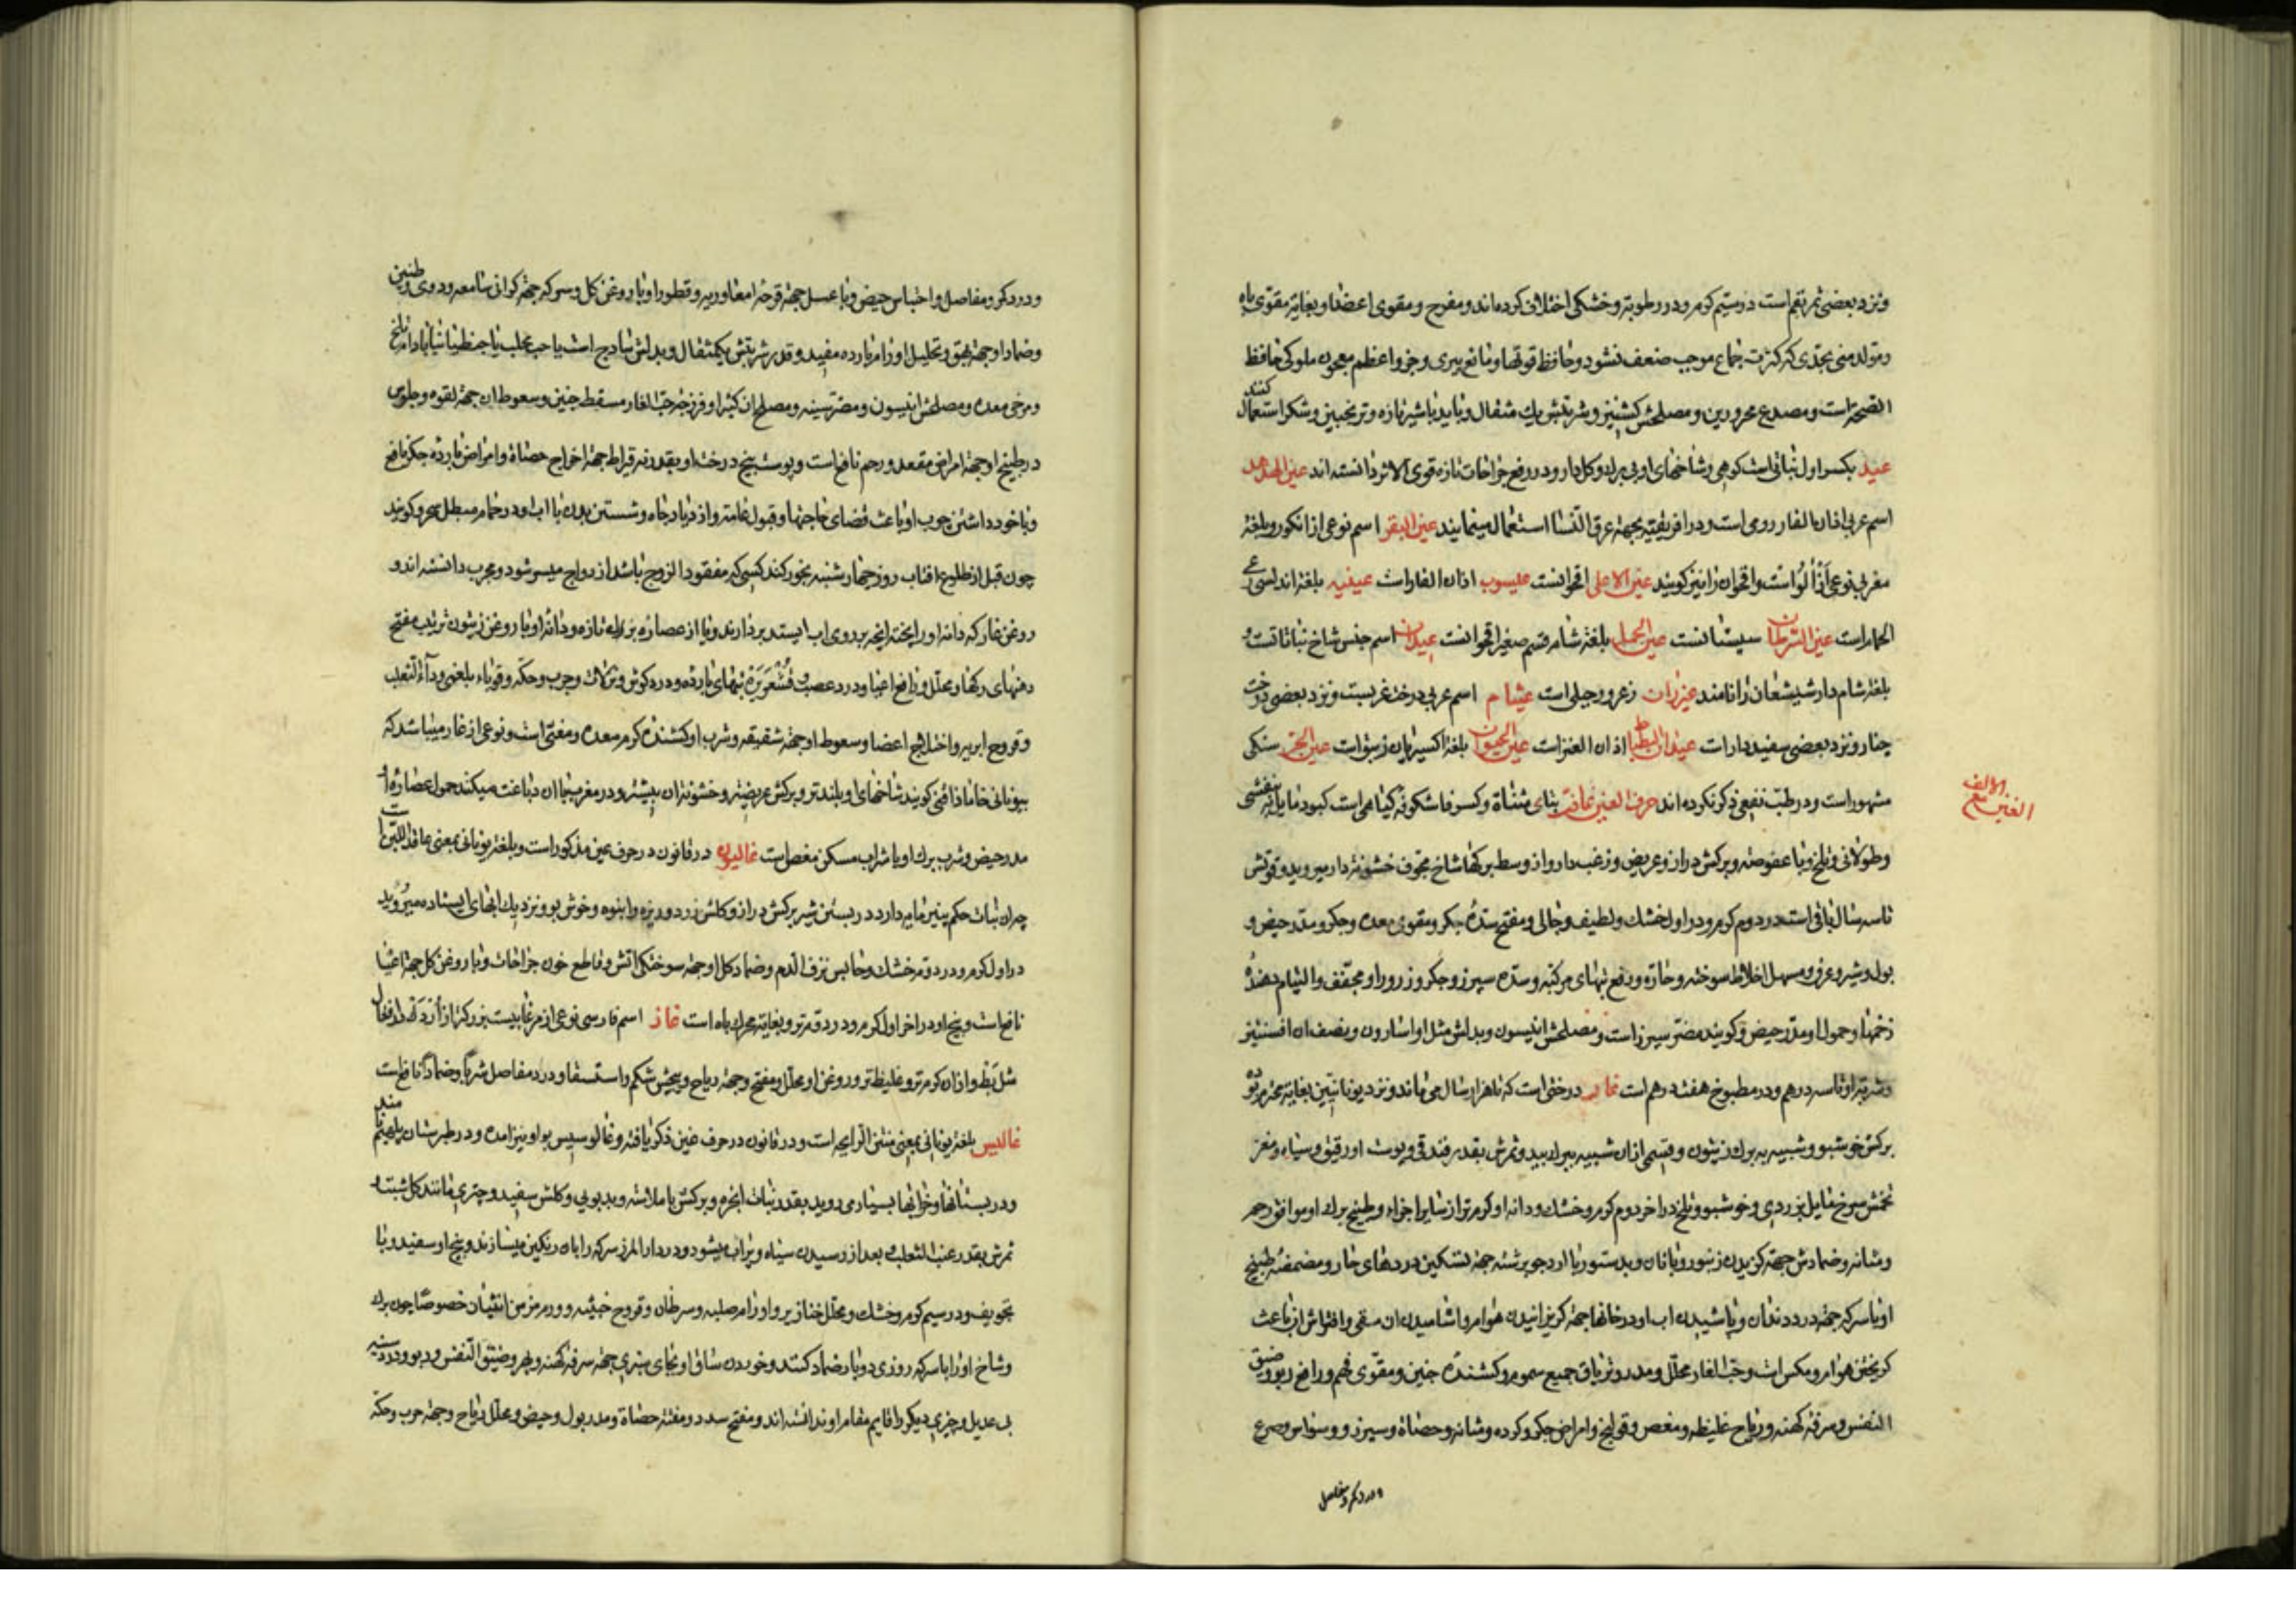 ونزد بعضی ثمر بقم است در سیم کرم و در رطوبة و خشکی اختلاف کرده‌اند و مفرح و مقوی اعضا و بغایة مقوی باه
و مولد منی بحدی که کثرت جماع موجب ضعف نشود و حافظ قوتها و مانع پیری و جزو اعظم معجون ملوکی حافظ
الصحة است و مصدع محرورین و مصلحش کشنیز و شربتش یك مثقال و باید با شیر تازه و ترنجبین و شکر استعمال کنند
عید بکسر اول نباتی است کوهی و شاخهای او بی برك و کل دارد و در رفع جراحات تازه قوی الاثر دانسته اند عین الهدهد
اسم عربی اذان الفار رومی است و در افریقیه بجهة عرق النسا استعمال مینمایند عین البقر اسم نوعی از انکور و بلغة
مغربی نوعی از الو است و اقحوان را نیز کویند عین الاعلی اقحوانست عیسوب اذان الفار است عیفیه بلغة اندلسی رعی
الحمار است عین السرطان سپستانست عین الجمل بلغة شام قسم صغیر اقحوانست عیدان اسم جنس شاخ نباتاتست و
بلغة شام دارشیشعان را نامند عیزران زعرور جبلی است عیثام اسم عربی درخت غربست و نزد بعضی درخت
چنار و نزد بعضی سفیددار است عیدان البطباط اذان العنز است عین الحیوان بلغة اکسیریان زیبق است عین الحجر سنکی
مشهور است و در طب نفعی ذکر نکرده اند حرف الغین غافت بتای مثناة و کسر فا شکوفه کیاهی است کبود مایل به بنفشی
الغین مع الالف
و طولانی و تلخ و با عفوصة و برکش دراز و عریض و زغب دار و از وسط برکها شاخ مجوف خشونة دار میروید و قوتش
تا سه سال باقی است در دوم کرم و در اول خشك و لطیف و جالی و مفتح سده جکر و مقوی معده و جکر و مدر حیض و
بول و شیر و عرق و مسهل اخلاط سوخته و حاره و رفع تبهای مرکبه و سده سپرز و جکر و زرور او مجفف و التیام دهنده
زخمها و حمول او مدر حیض و کویند مضر سپرز است و مصلحش انیسون و بدلش مثل او اسارون و نصف ان افسنتین
و شربة او تا سه درهم و در مطبوخ هفت درهم است غار درختی است که تا هزار سال می ماند و نزد یونانیین بغایة محترم بوده
برکش خوشبو و شبیه به برك زیتون و قسمی از ان شبیه ببرك بید و ثمرش بقدر فندقی و پوست او رقیق و سیاه و مغز
تخمش سرخ مایل بزردی و خوشبو و تلخ در اخر دوم کرم و خشك و دانه او کرم تر از سایر اجزاء و طبیخ برك او موافق رحم
و مثانه و ضمادش جهة کزیدن زنبور و با نان و بدستور با ارد جو برشته جهة تسکین دردهای حار و مضمضه طبیخ
او با سرکه جهة درد دندان و پاشیدن اب او در خانها جهة کریزانیدن هوام و اشامیدن ان مقی و افتراش ان باعث
کریختن هوام و مکس است و حب الغار محلل و مدر و تریاق جمیع سموم و کشنده جنین و مقوی فهم و رافع ربو و ضیق
النفس و سرفه کهنه و ریاح غلیظه و مغص و قولنج و امراض جکر و کرده و مثانه و حصاة و سپرز و وسواس و صرع
و درد کمر و مفاصل
و درد کمر و مفاصل و احتباس حیض و با عسل جهة قرحه امعا و ریه و قطور او با روغن کل و سرکه جهة کرانی سامعه و دوی و طنین
و ضماد او جهة بهق و تحلیل اورام بارده مفید و قدر شربتش یکمثقال و بدلش ساذج است یا حب محلب یا جنطیانا یا بادام تلخ
و مرخی معده و مصلحش انیسون و مضر سینه و مصلح ان کتیرا و فرزجه حب الغار مسقط جنین و سعوط ان جهة لقوه و جلوس
در طبیخ او جهة امراض مقعد و رحم نافع است و پوست بیخ درخت او بقدر نه قیراط جهة اخراج حصاة و امراض بارده جکر نافع
و با خود داشتن چوب او باعث قضای حاجتها و قبول عامه و ازدیاد جاه و شستن بدن با اب او در حمام مبطل سحر و کویند
چون قبل از طلوع افتاب روز چهارشنبه بخور کند کسی که مفقود الزوج باشد ازدواج میسر شود و مجرب دانسته اند و
روغن غار که دانه او را پخته انچه بر روی اب ایستد بردارند و یا از عصاره برك تازه و دانه او با روغن زیتون ترتیب مفتح
دهنهای رکها و محلل و رافع اعیا و درد عصب و قشعریره تبهای بارده و درد کوش و نزلات و جرب و حکه و قوباء بلغمی و داء الثعلب
و قروح ابریه و اختلاج اعضا و سعوط او جهة شقیقه و شرب او کشنده کرم معده و مغثی است و نوعی از غار میباشد که
بیونانی خاماذافنی کویند شاخهای او بلند تر و برکش عریض تر و خشونة ان بیشتر و در مغرب با ان دباغت میکنند حمول عصاره او
مدر حیض و شرب برك او با شراب مسکن مغص است غالیون در قانون در حرف عین مذکور است و بلغة یونانی بمعنی عاقد اللبن است
چه ان نبات حکم پنیر مایه دارد در بستن شیر برکش دراز و کلش زرد و ریزه و انبوه و خوش بو و نزدیك ابهای ایستاده میروید
در اول کرم و در دوم خشك و حابس نزف الدم و ضماد کل او جهة سوختکی اتش و قاطع خون جراحات و با روغن کل جهة اعیا
نافع است و بیخ او در اخر اول کرم و در دوم تر و بغایة محرك باه است غاز اسم فارسی نوعی از مرغابیست بزرکتر از اردك و در افعال
مثل بط و از ان کرم تر و غلیظ تر و روغن او محلل و مفتح و جهة ریاح و پیچش شکم و استسقا و درد مفاصل شربا و ضمادا نافع است
غالبس بلغة یونانی بمعنی منتن الرایحه است و در قانون در حرف غین ذکر یافته و غالوسیس بواو نیز امده و در طبرستان پلهم نامند
و در بستانها و خرابها بسیار می روید بقدر نبات انجره و برکش با ملاسه و بدبویی و کلش سفید و چتری مانند کل شبت و
ثمرش بقدر عنب الثعلب و بعد از رسیدن سیاه و پر اب میشود و در دار المرز سرکه را بان رنکین میسازند و بیخ او سفید و با
تجویف و در سیم کرم و خشك و محلل خنازیر و اورام صلبه و سرطان و قروح خبیثه و ورم مزمن انثیان خصوصا چون برك
و شاخ او را با سرکه روزی دو بار ضماد کنند و خوردن ساق او بجای سبزی جهة سرفه کهنه و بهر و ضیق النفس و ربو و درد سینه
بی عدیل و چیزی دیکر را قایم مقام او ندانسته اند و مفتح سدد و مفتته حصاة و مدر بول و حیض و محلل ریاح و جهة جرب و حکه